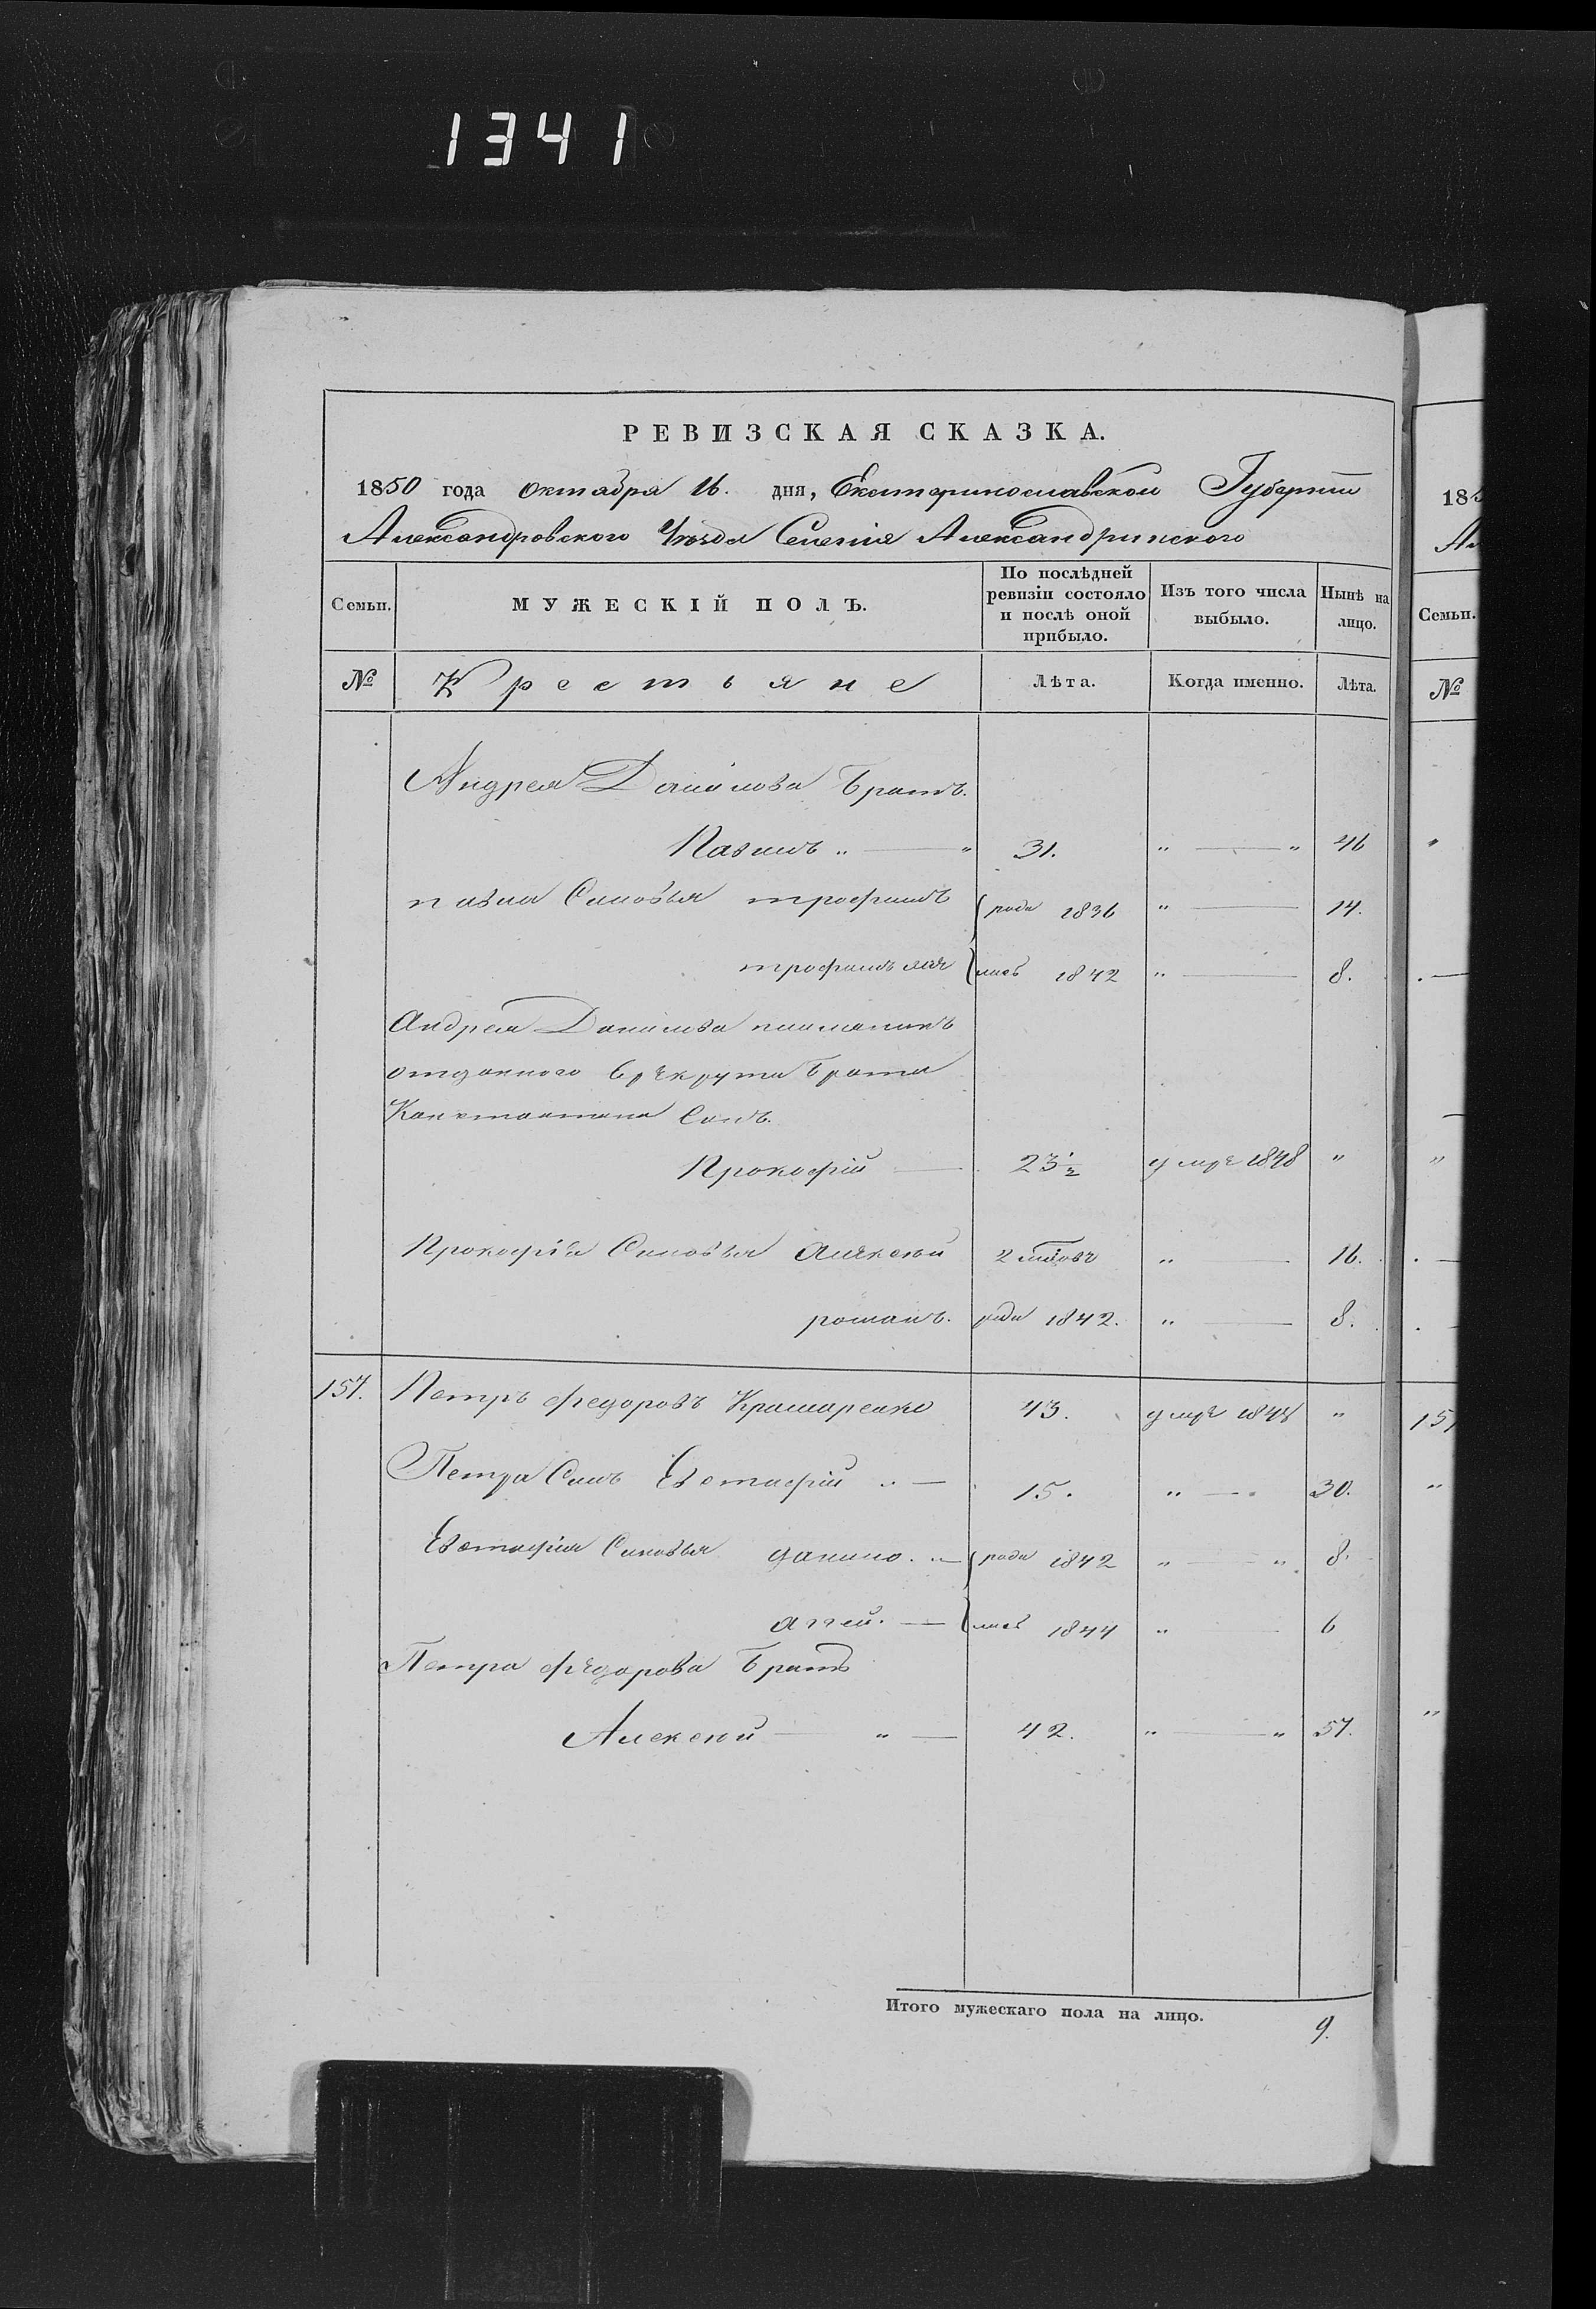 1341
РЕВИЗСКАЯ СКАЗКА.
1850 года Октября 16. дня, Екатеринославской Губернии
Александровского Уезда Селения Александринского
Семьи. МУЖЕСКІЙ ПОЛЪ. По послѣдней ревизіи состояло и послѣ оной прибыло. Изъ того числа выбыло. Нынѣ на лицо.
№ Крестьяне Лѣта. Когда именно. Лѣта.
Андрея Данилова братъ.
Павилъ „ — „ 31. „ — „ 46
павла Сыновья трофимъ рода 1836 „ — 14.
трофимъ 1842 „ — 8.
Андрея Данилова племяникъ
отданного врекрута брата
Константина Сынъ.
Прокофій — 23½ умре 1848 „
Прокофія Сыновья Алексей 2 „ — 16.
романъ. рода 1842. „ — 8.
157. Петръ Федоровъ 43. умре „
Петра Сынъ Евстафій „ — 15. „ — „ 30.
Евстафія Сыновья данило. „ — рода 1842 „ — „ 8.
аггей. — 1844 „ — 6
Петра Федорова братъ
Алексей — „ — 42. „ — „ 57.
Итого мужескаго пола на лицо. 9.
185
Ал
Семьи.
№
157